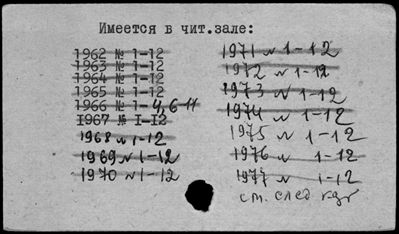 Имеется в чит.зале:
1962 № 1-12
1963 № 1-12
1964 № 1-12
1965 № 1-12
1966 № 1-4,6-11
1967 № I-I2
1968 № 1-12
1969 № 1-12
1970 № 1-12
1971 № 1-12
1972 № 1-12
1973 № 1-12
1974 № 1-12
1975 № 1-12
1976 № 1-12
1977 № 1-12
см. след